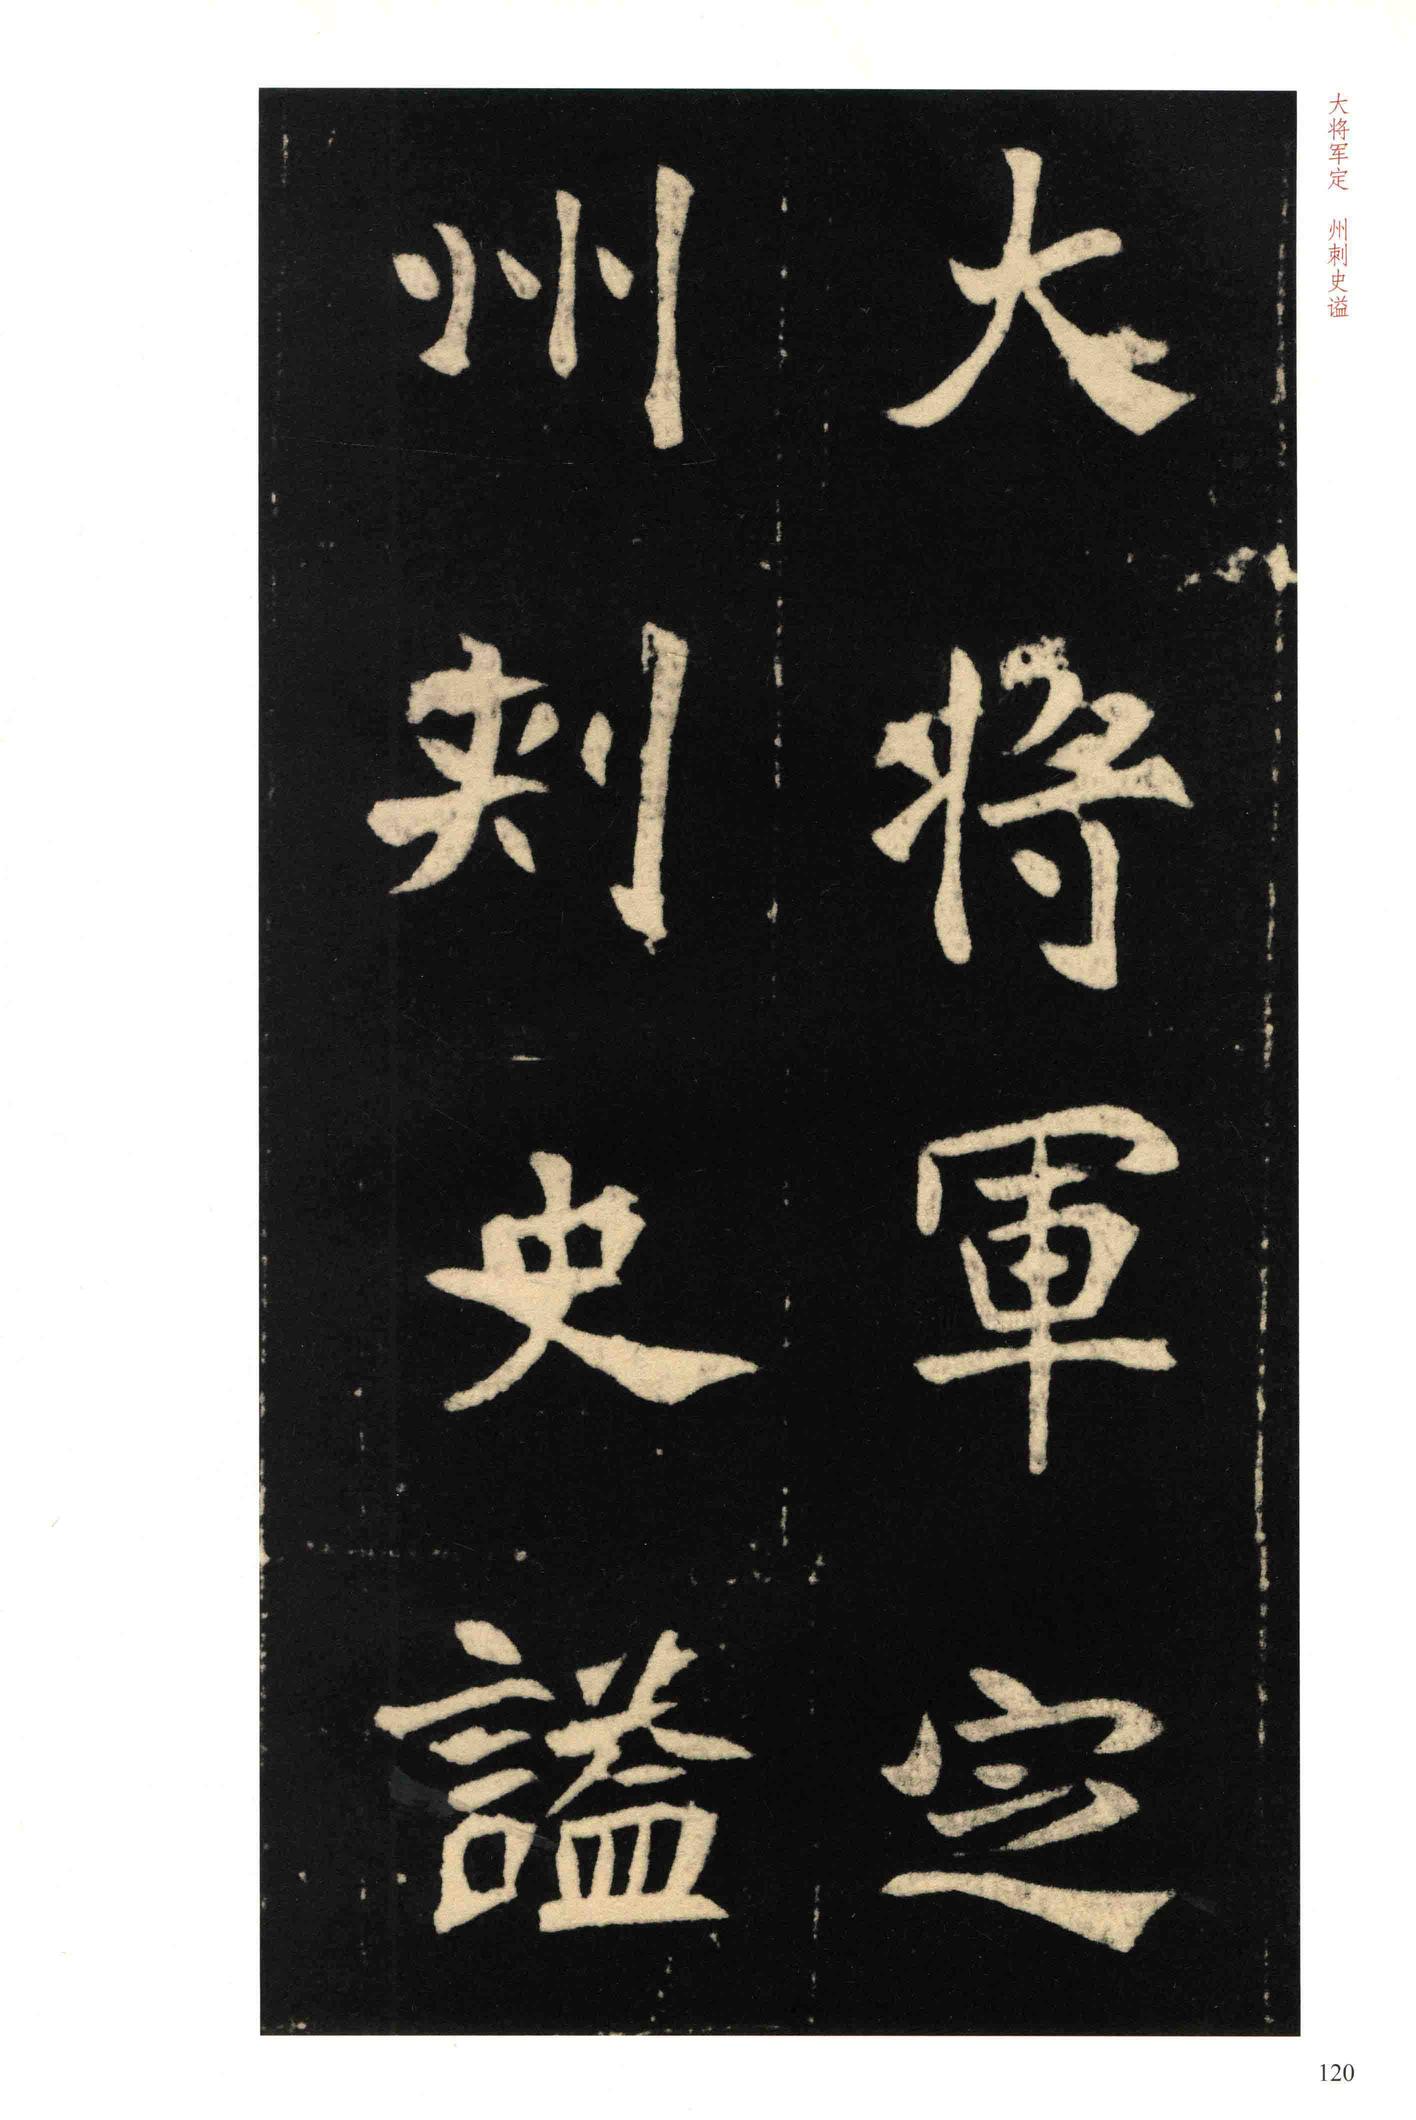 大將軍定
州刺史謚
大将军定 州刺史谥
120